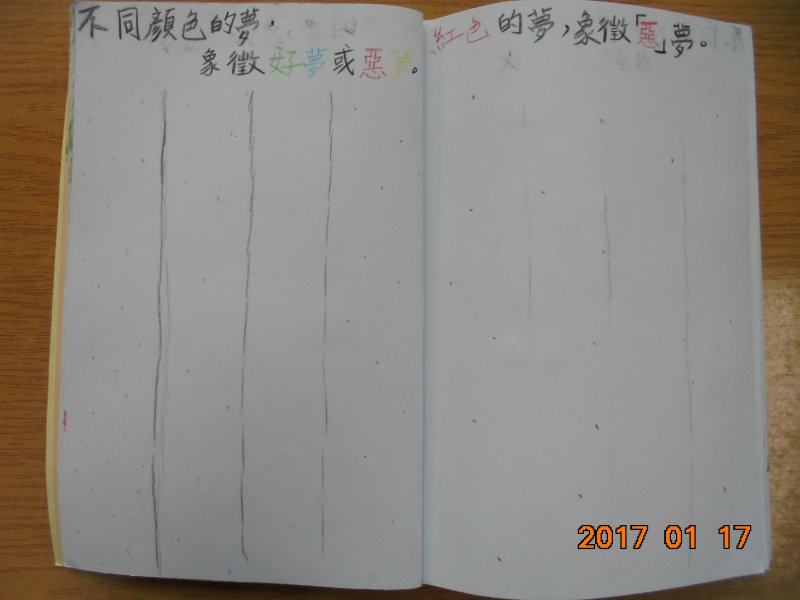 不同顏色的夢，
象徵好夢或惡夢。
紅色的夢，象徵「惡」夢。
2017 01 17